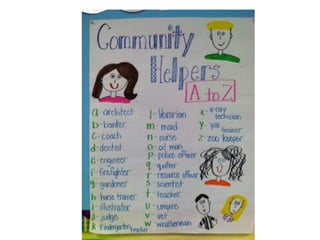 Community
Helpers
A to Z
a-architect
b-banker
c-coach
d-dentist
e-engineer
f-firefighter
g-gardener
h-horse trainer
i-illustrator
j-judge
k-kindergarten teacher
l-librarian
m-maid
n-nurse
o-oil man
p-police officer
q-quilter
r-resource officer
s-scientist
t-teacher
u-umpire
v-vet
w-weatherman
x-x-ray
y-yak trainer
z-zoo keeper